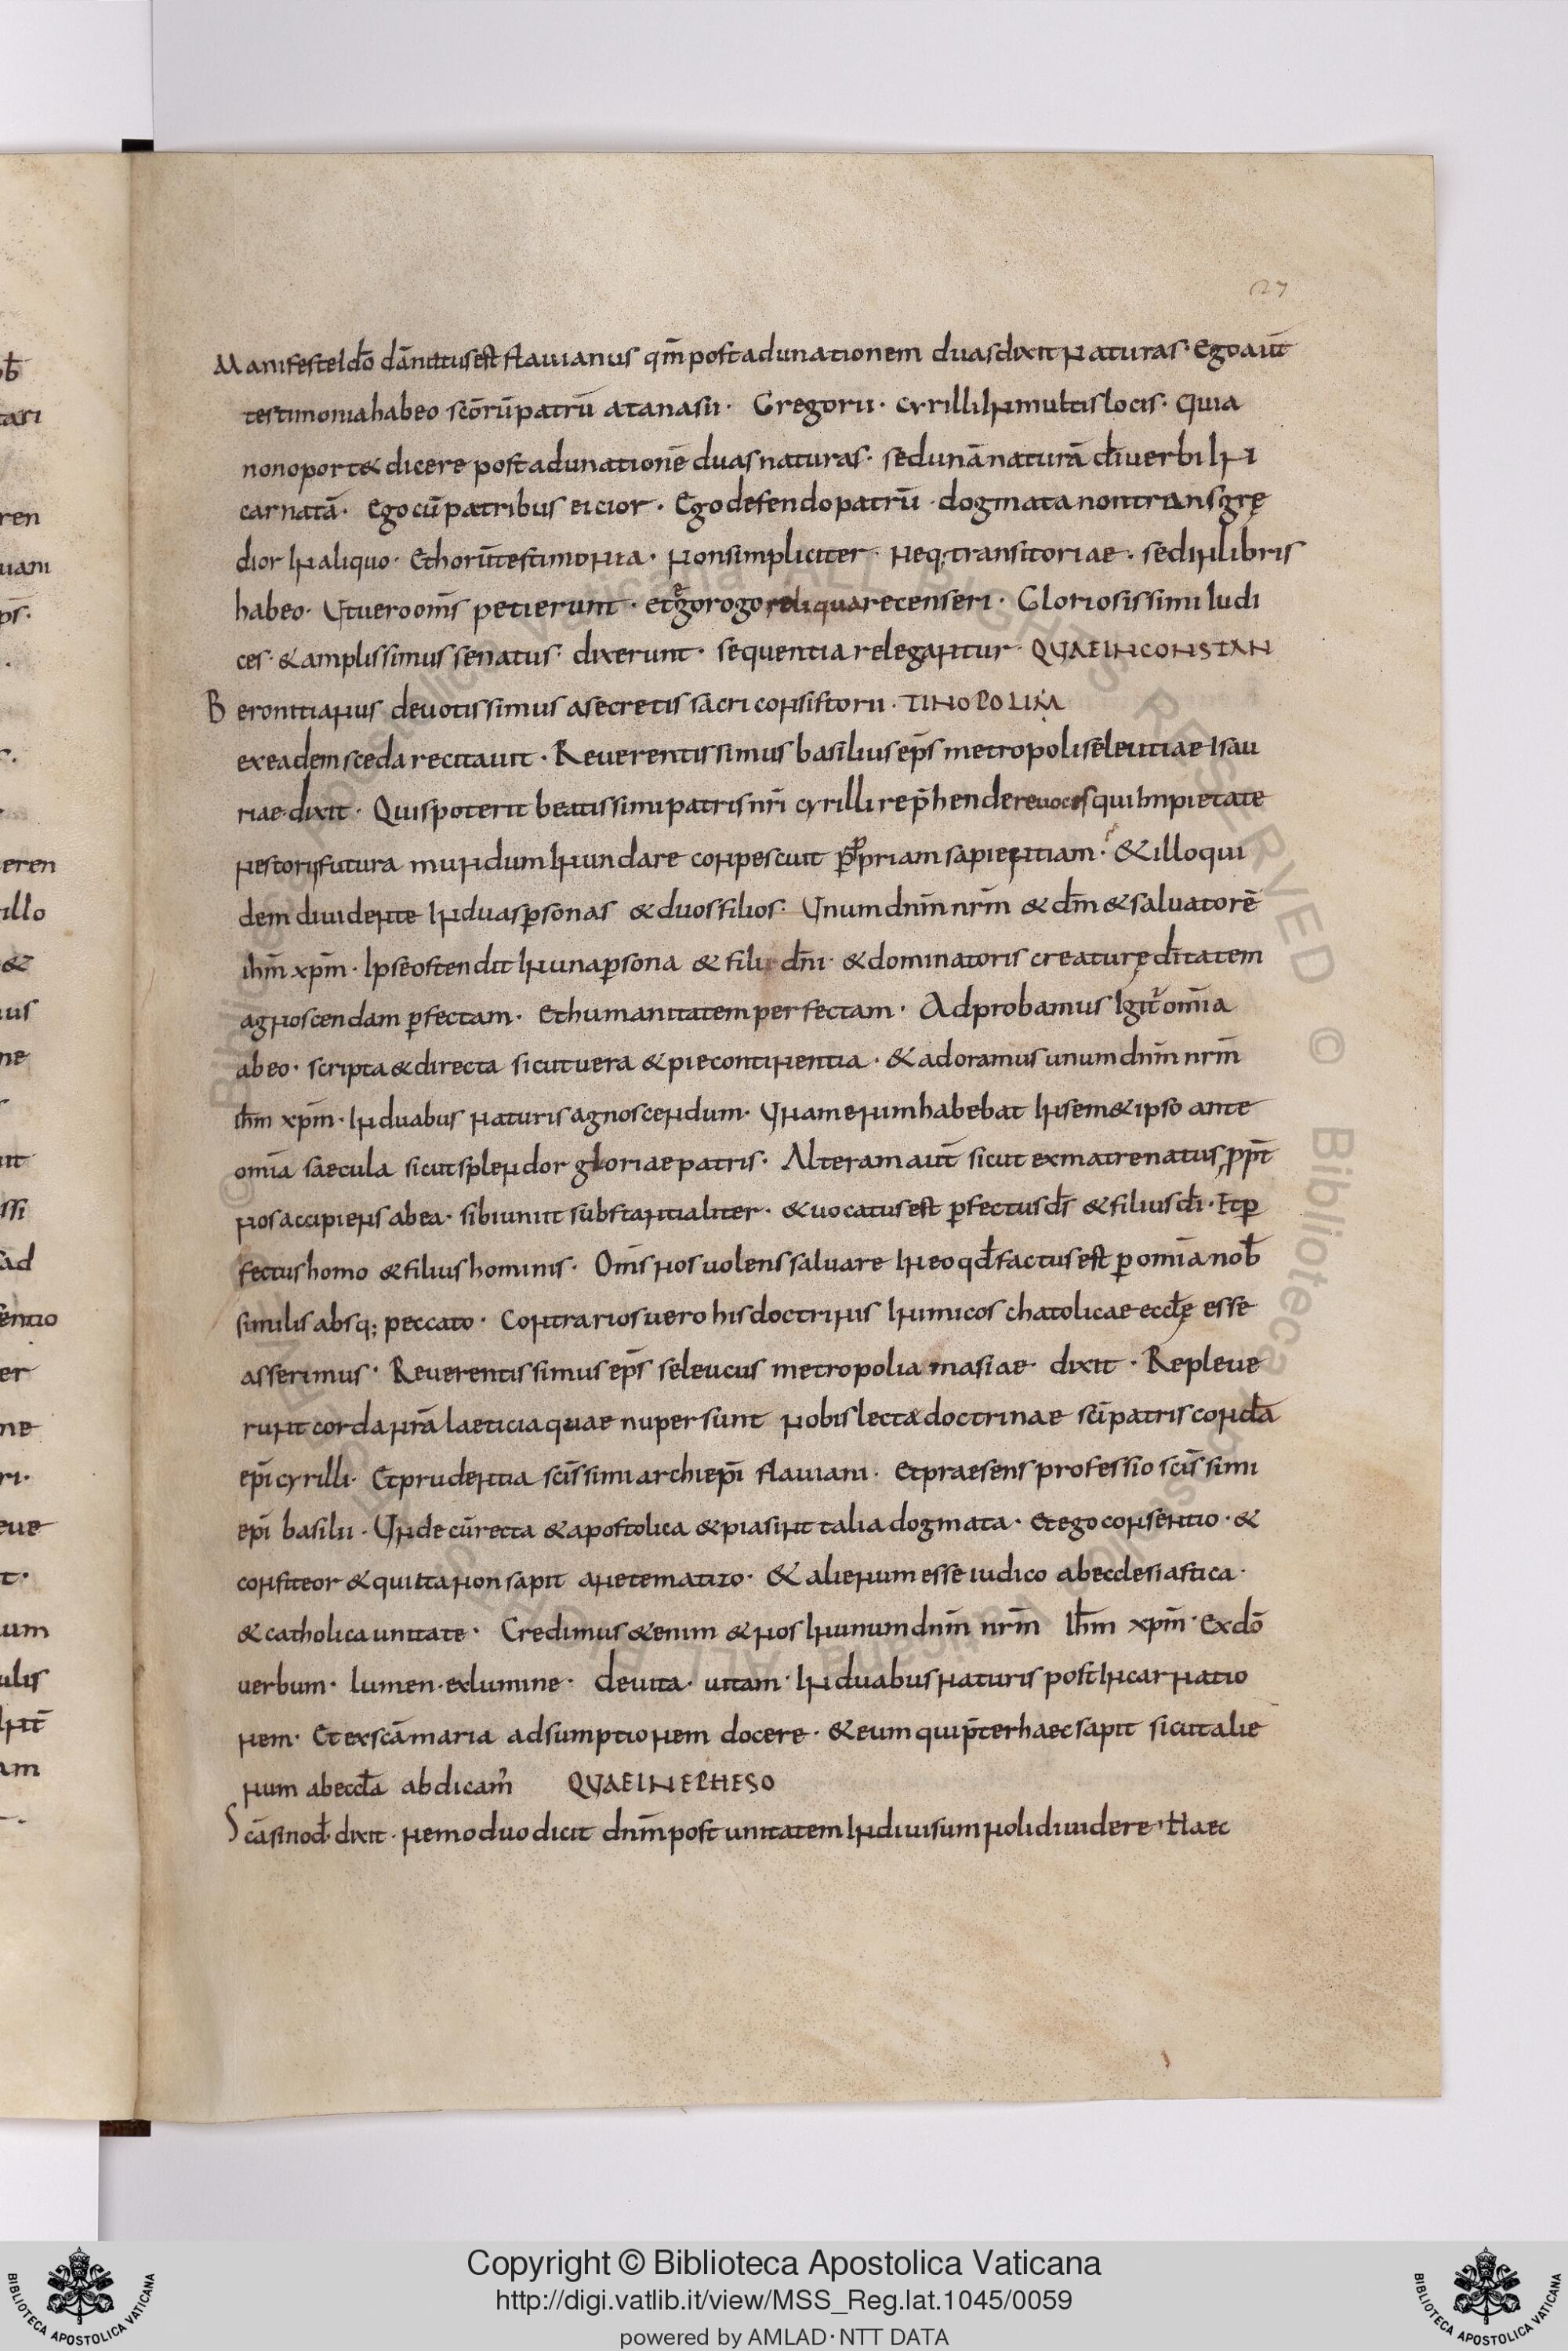 27
Manifeste Ido dānatus est flauianus qm̄ post adunationem duas dixit naturas · Ego aut̄
testimonia habeo scōrū patrū atanasii · Gregorii · cyrilli In multis locis · Quia
non oport& dicere post adunationē duas naturas · sed unā naturā dī uerbi In
carnatā · Ego cū patribus eicior · Ego defendo patrū · dogmata non transgrę
dior In aliquo · Et horū testimonia · Non simpliciter · Neq; transitoriae · sed in libris
habeo · Vt uero om̄s petierunt · et ergo rogo reliqua recenseri · Gloriosissimi Iudi
ces · & amplissimus senatus · dixerunt · sequentia relegantur · QUAE IN CONSTAN
Beronitianus deuotissimus a secretis sacri consistorii · TINOPOLIM
ex eadem sceda recitauit · Reuerentissimus basilius ep̄s metropoli seleuciae Isau
riae · dixit · Quis poterit beatissimi patris nr̄i cyrilli rep̄hendere uoces qui Inpietate
nestorii futura mundum Inundare conpescuit p̄priam sapientiam · & illo qui
dem diuidente In duas psonas & duos filios · Vnum dnm̄ nrm̄ & dm̄ & saluatorē
ihm̄ xpm̄ · Ipse ostendit In una psona & filii dn̄i · & dominatoris creaturę dītatem
agnoscendam pfectam · Et humanitatem perfectam · Adprobamus Igit̄ om̄ia
ab eo · scripta & directa sicut uera & pie continentia · & adoramus unum dnm̄ nrm̄
Ihm̄ xpm̄ · In duabus naturis agnoscendum · Vnam enim habebat In sem&ipso ante
om̄ia saecula sicut splendor gloriae patris · Alteram aut̄ sicut ex matre natus, ppt̄
nos accipiens ab ea · sibi uniit substantialiter · & uocatus est pfectus ds̄ & filius dī · Et p
fectus homo & filius hominis · Om̄s nos uolens saluare In eo qđ factus est p om̄ia nob̄
similis absq; peccato · Contrarios uero his doctrinis Inimicos chatolicae eccłę esse
asserimus · Reuerentissimus ep̄s seleucus metropoli amasiae · dixit · Repleue
runt corda nr̄a laeticia quae nuper sunt nobis lecta doctrinae sc̄i patris condā
ep̄i cyrilli · Et prudentia sc̄issimi archiep̄i flauiani · Et praesens professio sc̄issimi
ep̄i basilii · Vnde cū recta & apostolica & pia sint talia dogmata · Et ego consentio · &
confiteor & qui ita non sapit anetematizo · & alienum esse iudico ab ecclesiastica ·
& catholica unitate · Credimus & enim & nos In unum dnm̄ nrm̄ Ihm̄ xpm̄ · Ex dō
uerbum · lumen · ex lumine · de uita · uitam · In duabus naturis post Incarnatio
nem · Et ex scā maria adsumptionem docere · & eum qui p̄ter haec sapit sicut alie
num ab eccła abdicam̄ QUAE IN EPHESO
Scā sinod · dixit · Nemo duo dicit dnm̄ post unitatem Indiuisum noli diuidere · Haec
Copyright © Biblioteca Apostolica Vaticana
http://digi.vatlib.it/view/MSS_Reg.lat.1045/0059
powered by AMLAD·NTT DATA